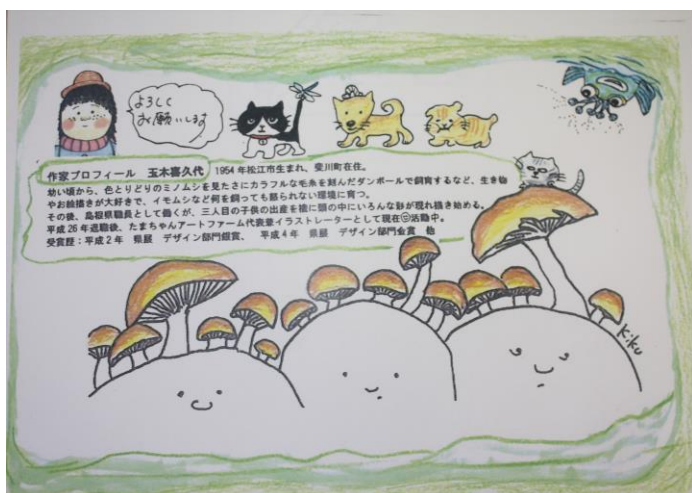 よろしく
お願いします
作家プロフィール 玉木喜久代 1954年松江市生まれ、斐川町在住。
幼い頃から、色とりどりのミノムシを見たさにカラフルな毛糸を刻んだダンボールで飼育するなど、生き物
やお絵描きが大好きで、イモムシなど何を飼っても怒られない環境に育つ。
その後、島根県職員として働くが、三人目の子供の出産を境に頭の中にいろんな形が現れ描き始める。
平成26年退職後、たまちゃんアートファーム代表兼イラストレーターとして現在活動中。
受賞歴：平成2年 県展 デザイン部門銀賞、 平成4年 県展 デザイン部門金賞 他
Kiku